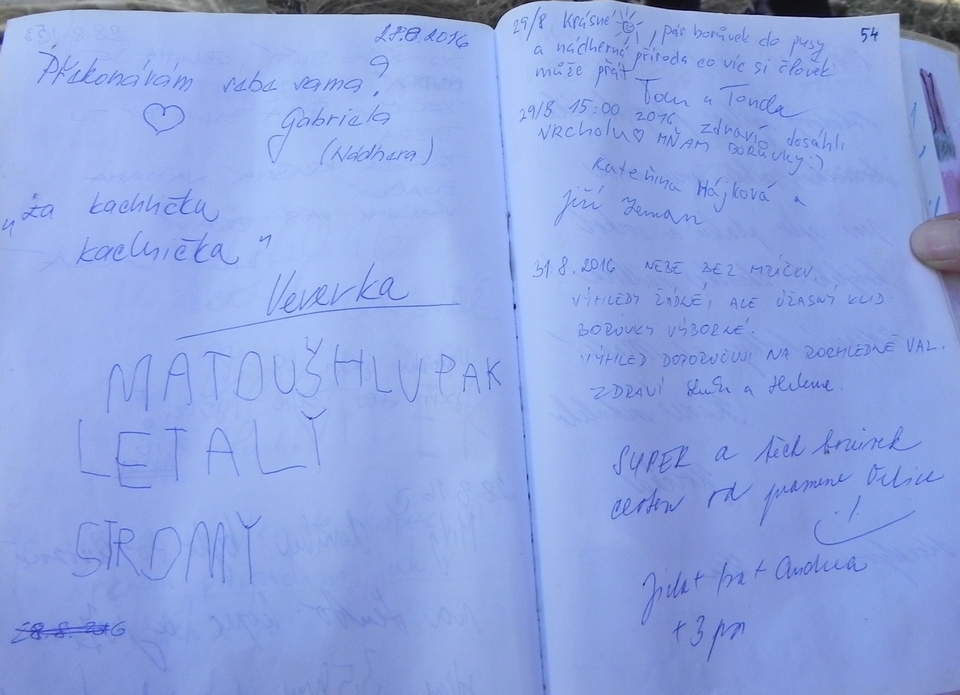 28.8.2016
Překonávám sebe sama?
Gabriela
(Nádhera)
„za kachničku
kachnička"
Veverka
MATOUŠ HLUPAK
LETALY
STROMY
28.8.2016
54
29/8 Krásné, pár borůvek do pusy
a nádherná příroda co víc si člověk
může přát
Tom a Tonda
29/8 15:00 2016 zdraví dosáhli
VRCHOLU MŇAM BORŮVKY:)
Kateřina Hájková a
Jiří Zeman
31.8.2016 NEBE BEZ MRÁČKU,
VÝHLEDY ŽÁDNÉ, ALE ÚŽASNÝ KLID.
BORŮVKY VÝBORNÉ.
VÝHLED DOPORUČUJI NA ROCHLEDNĚ VAL.
ZDRAVÍ a Helena.
SUPER a těch borůvek
cestou od pramene Orlice
+ Andrea
+ 3 psi